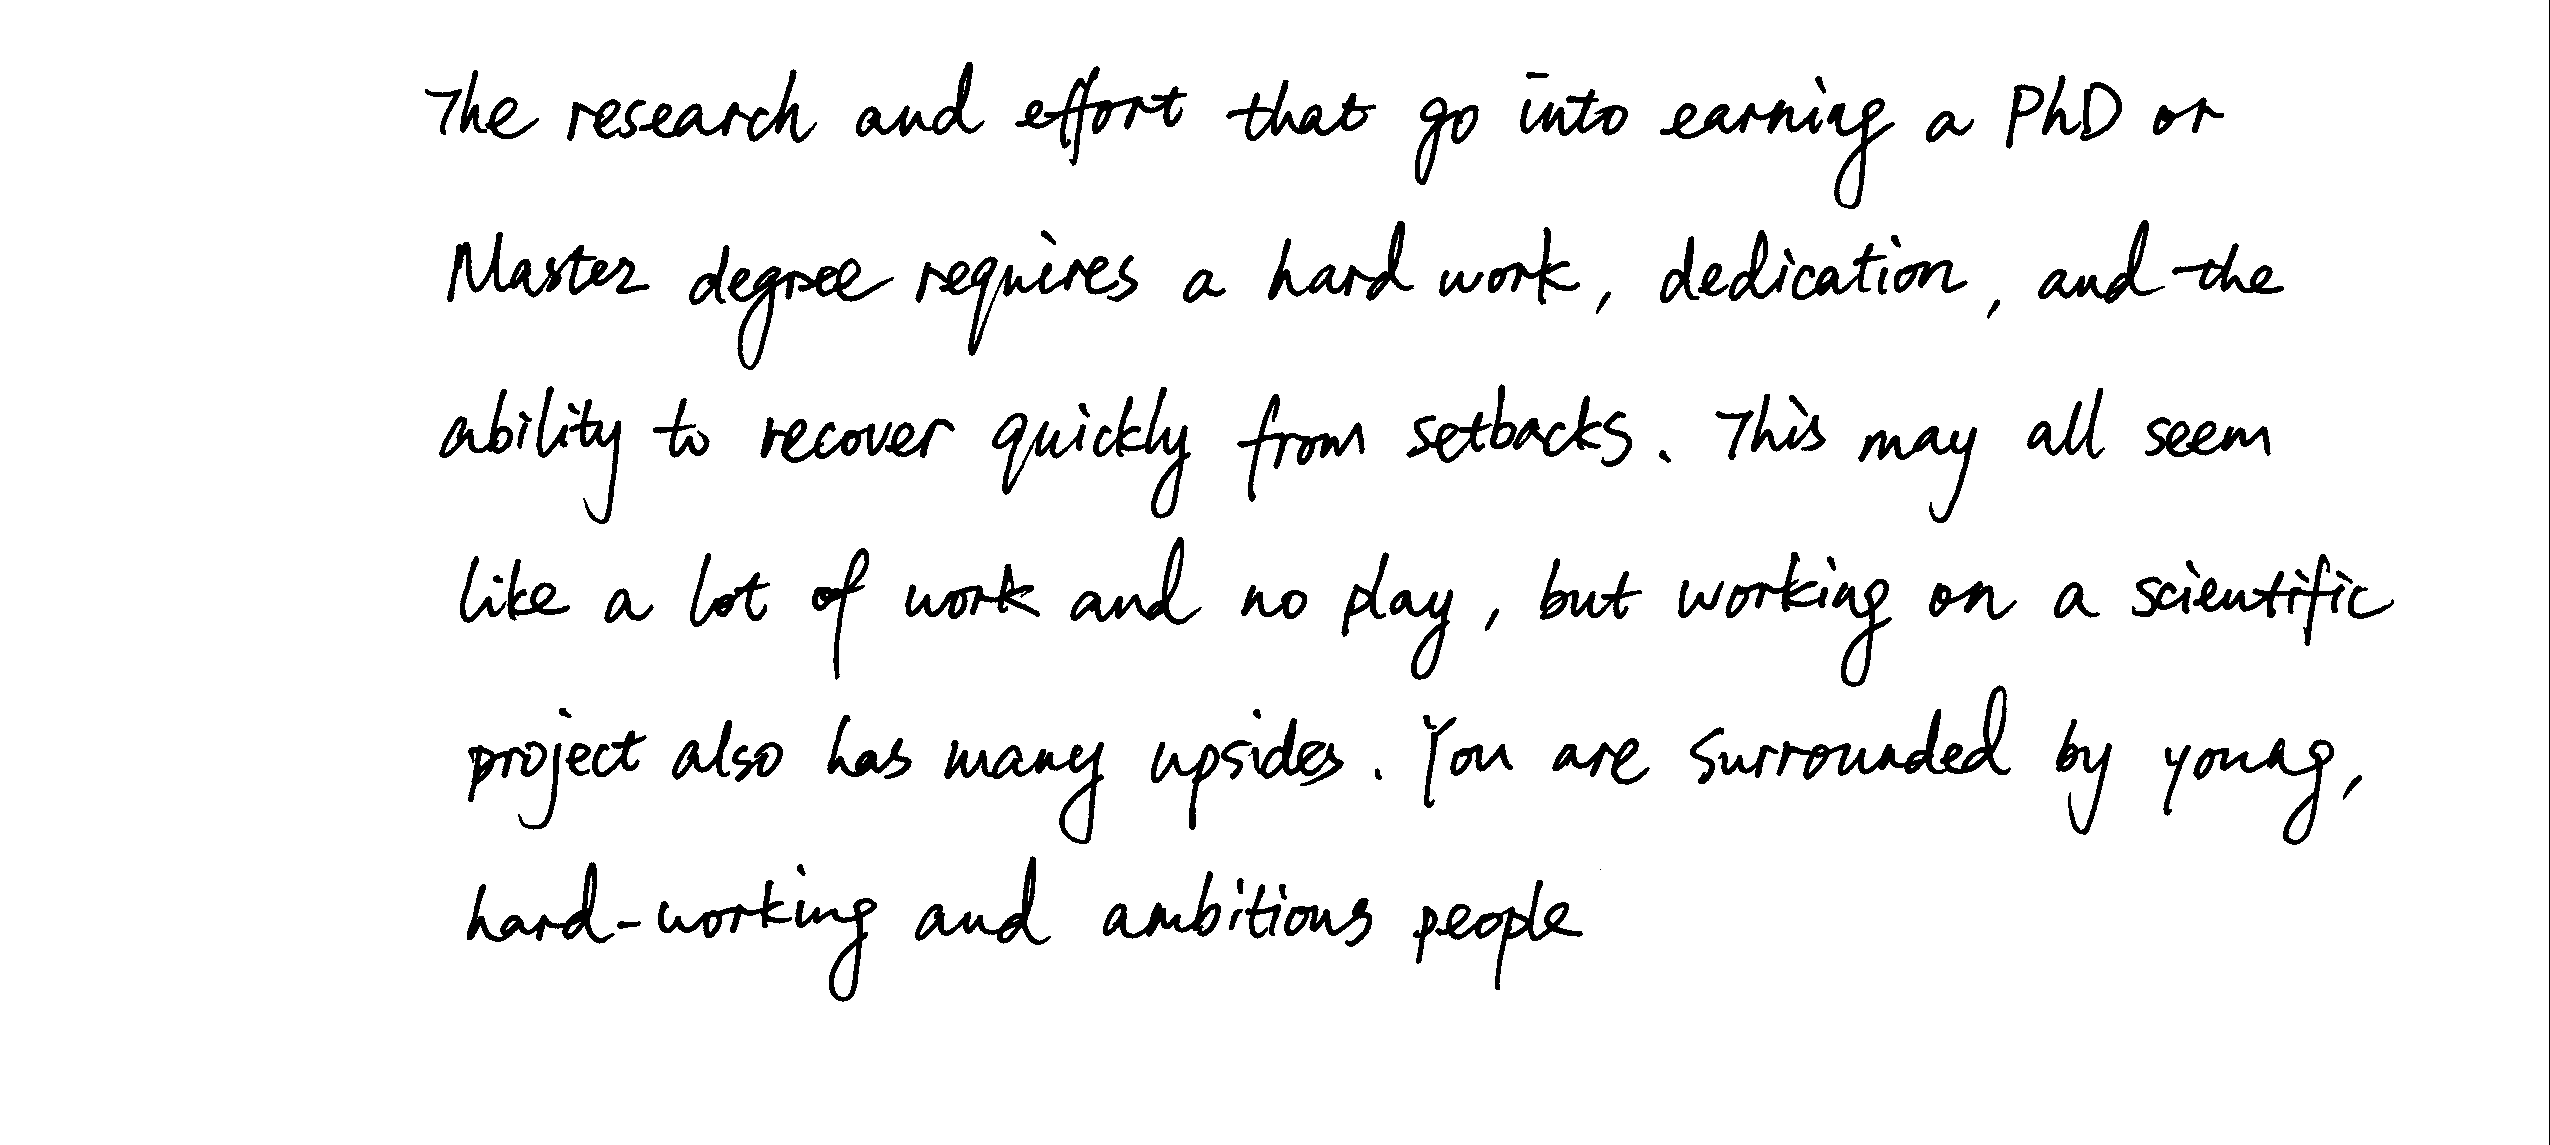 The research and effort that go into earning a PhD or
Master degree requires a hard work, dedication, and the
ability to recover quickly from setbacks. This may all seem
like a lot of work and no play, but working on a scientific
project also has many upsides. You are surrounded by young,
hard-working and ambitious people